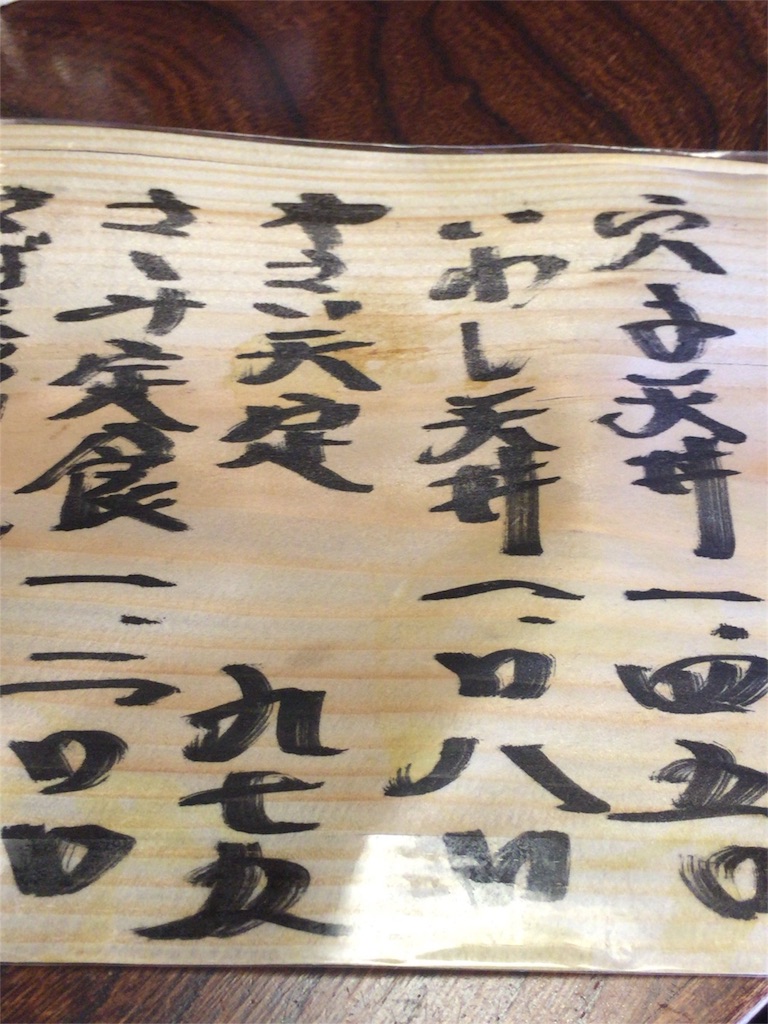 穴子天丼 一.四五〇
いわし天丼 一.〇八〇
やさい天定 九七五
さしみ定食 一.二〇〇